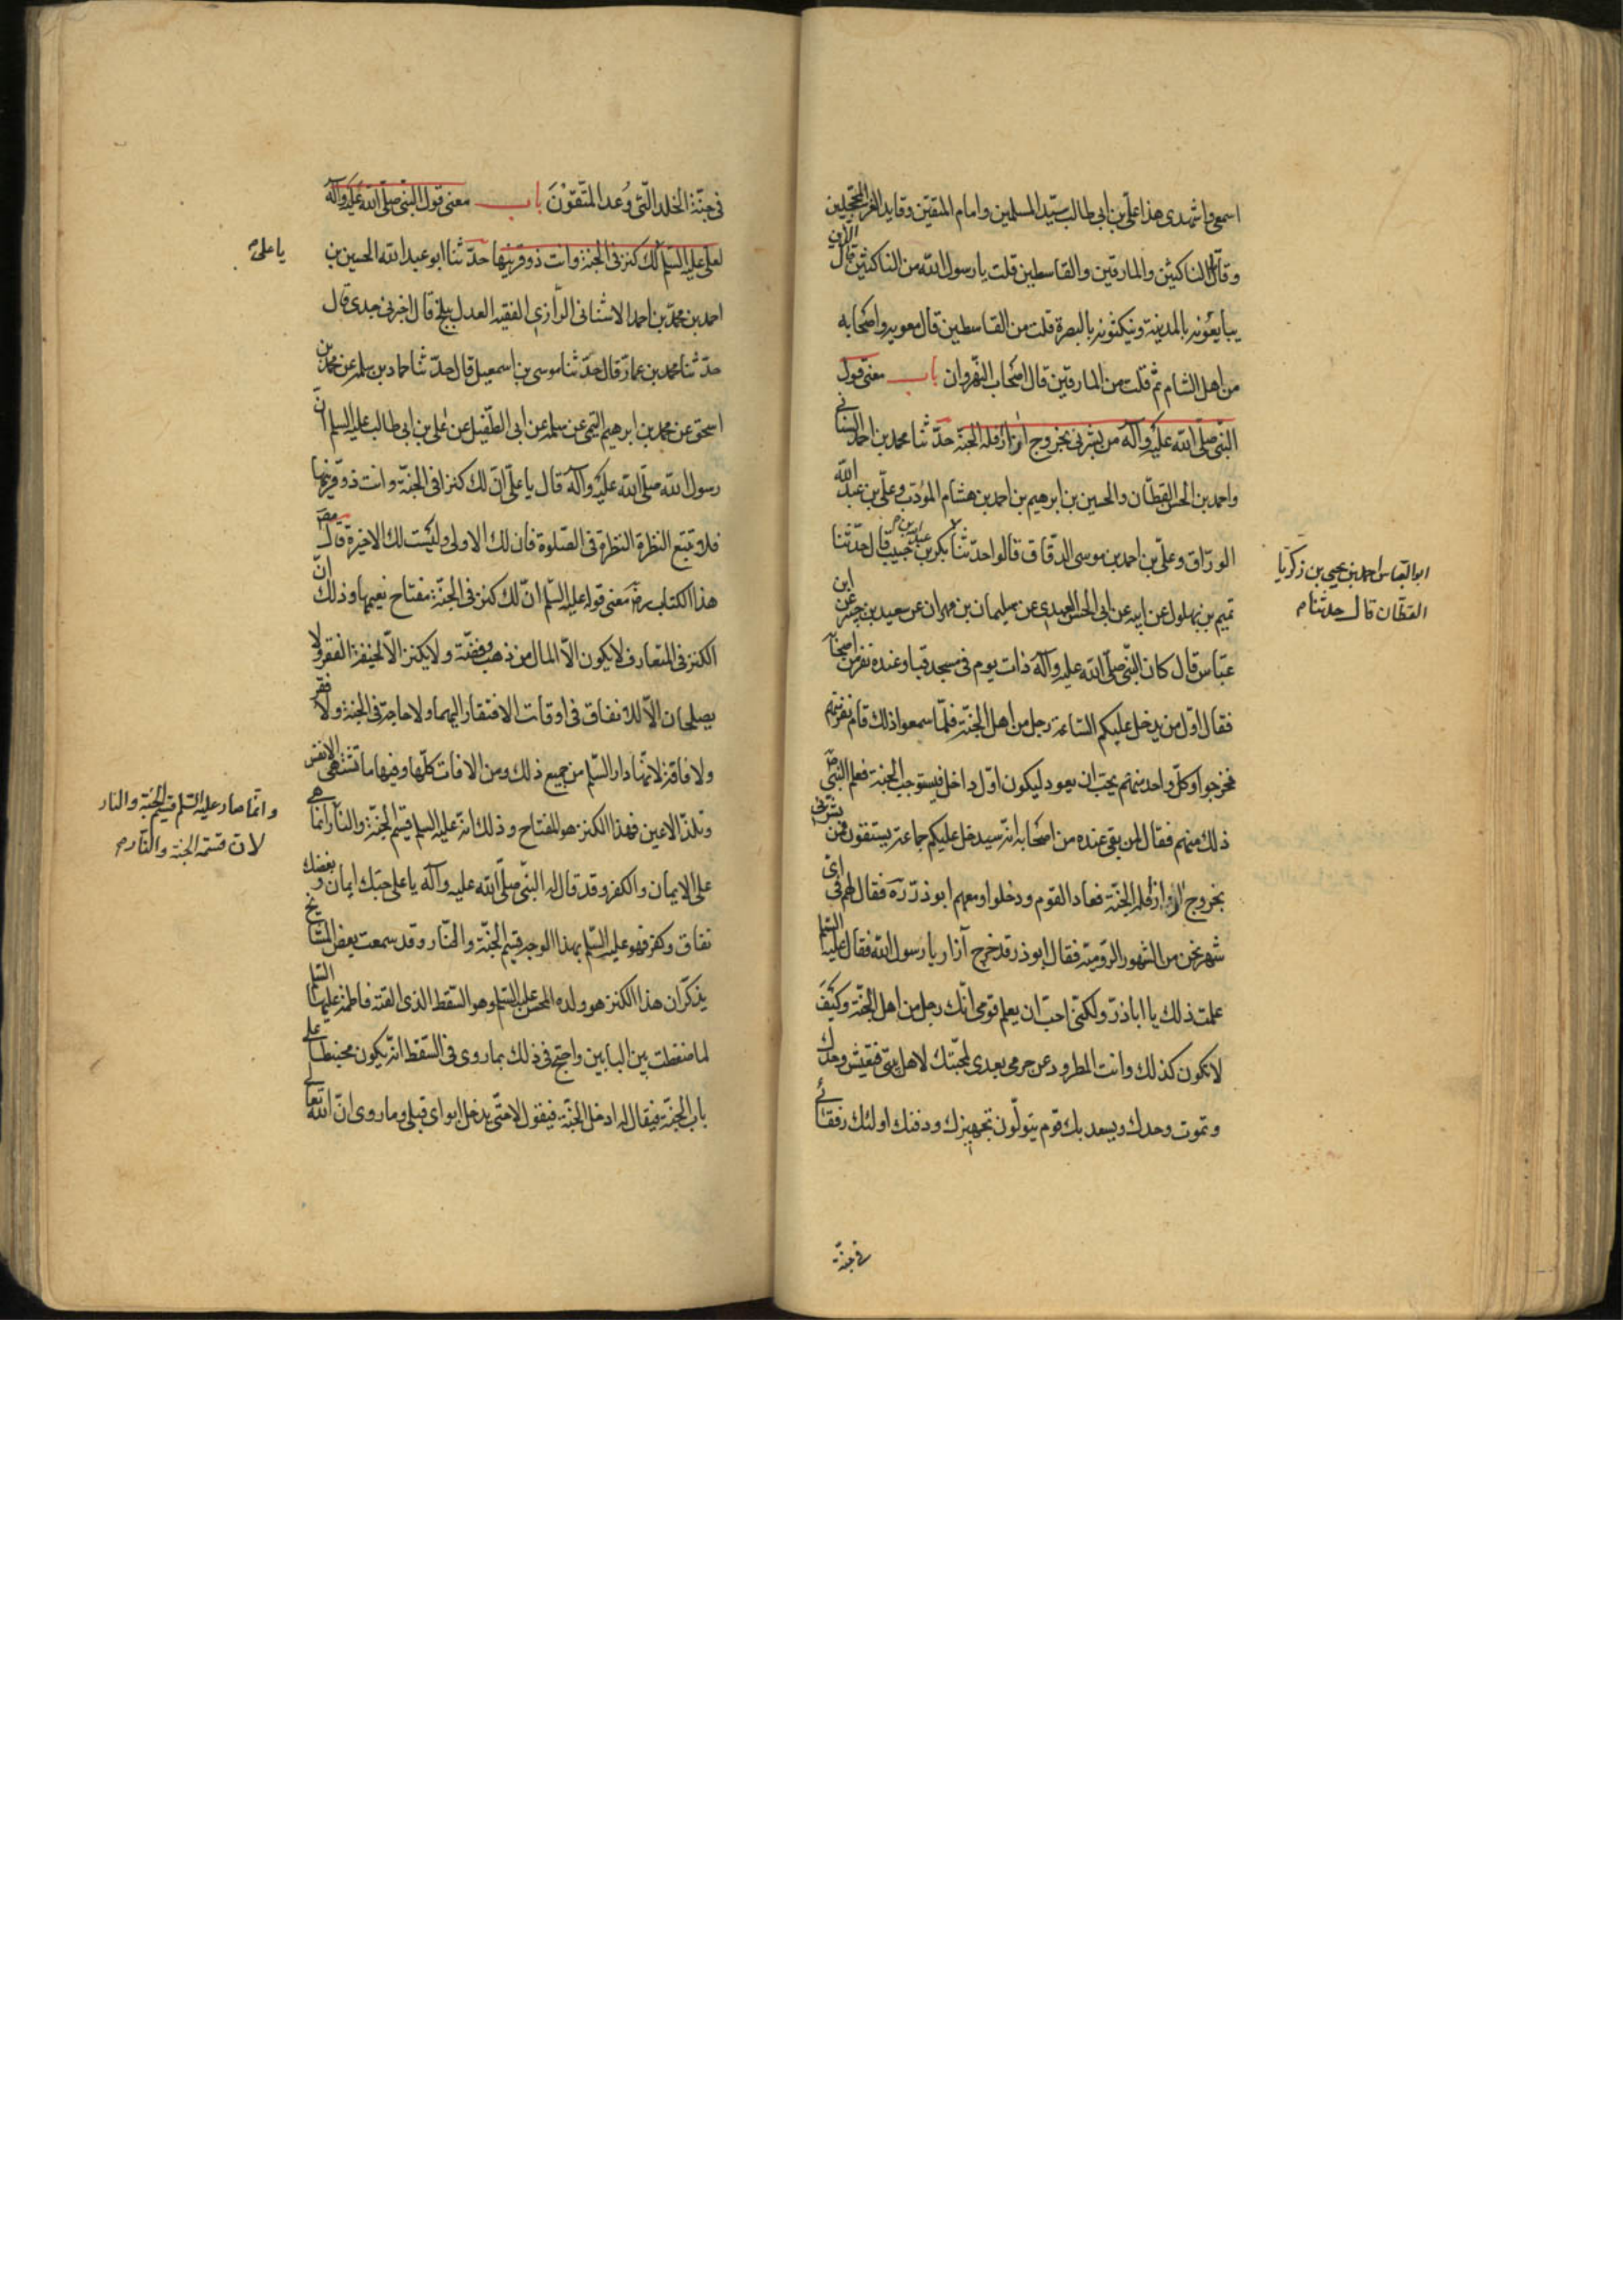 اسمعى واشهدى هذا على بن ابى طالب سيّد المسلمين وامام المتقين وقايد الغر المحجلين
وقاتل الناكثين والمارقين والقاسطين قلت يا رسول الله من الناكثين قال الذين
يبايعونه بالمدينة وينكثونه بالبصرة قلت من القاسطين قال معويه واصحابه
من اهل الشام ثم قلت من المارقين قال اصحاب النهروان باب معنى قول
النبى صلّى الله عليه وآله من بشرنى بخروج آزار فله الجنة حدّثنا محمد بن احمد السنانى
واحمد بن الحسن القطان والحسين بن ابرهيم بن احمد بن هشام المؤدب وعلى بن عبد الله
الورّاق وعلى بن احمد بن موسى الدقاق قالوا حدّثنا بكر بن عبد الله بن حبيب قال حدثنا
ابو العباس احمد بن يحيى بن زكريا
القطان قال حدثنا م
تميم بن بهلول عن ابيه عن ابى الحسن العبدى عن سليمان بن مهران عن سعيد بن جبير عن ابن
عبّاس قال كان النبى صلّى الله عليه وآله ذات يوم فى مسجد قبا وعنده نفر من اصحابه
فقال اوّل من يدخل عليكم الساعة رجل من اهل الجنّة فلمّا سمعوا ذلك قام نفر منهم
فخرجوا وكلّ واحد منهم يحبّ ان يعود ليكون اوّل داخل فيستوجب الجنة فعلم النبى ص
ذلك منهم فقال لمن بقى عنده من اصحابه انه سيدخل عليكم جماعة يستبقون فمن بشرنى
بخروج آزار فله الجنّة فعاد القوم ودخلوا ومعهم ابو ذرّ ره فقال لهم فى اىّ
شهر نحن من الشهور الروميّة فقال ابو ذر قد خرج آزار يا رسول الله فقال عليه السلم
علمت ذلك يا اباذرّ ولكنّى احبّ ان يعلم قومى انّك رجل من اهل الجنّة وكيف
لا يكون كذلك وانت المطرود عن حرمى بعدى لمحبّتك لاهل بيتى فتعيش وحدك
وتموت وحدك ويسعد بك قوم يتولّون تجهيزك ودفنك اولئك رفقائى
فى جنّة
فى جنّة الخلد التى وُعد المتّقونَ باب معنى قول النبى صلّى الله عليه وآله
لعلى عليه السلم لك كنز فى الجنة وانت ذو قرنيها حدّثنا ابو عبد الله الحسين بن
يا على م
احمد بن محمد بن احمد الاشنانى الرّازى الفقيه العدل ببلخ قال اخبرنى جدى قال
حدّثنا محمد بن عمار قال حدّثنا موسى بن اسمعيل قال حدّثنا حماد بن سلمه عن محمد بن
اسحق عن محمد بن ابرهيم التيمى عن سلمه عن ابى الطفيل عن على بن ابى طالب عليه السلم انّ
رسول الله صلّى الله عليه وآله قال يا علىّ انّ لك كنزا فى الجنّة وانت ذو قرنيها
فلا تتبع النظرة النظرة فى الصلوة فان لك الاولى وليست لك الاخيرة قال مص
هذا الكتاب رضى معنى قوله عليه السلم انّ لك كنز فى الجنّة مفتاح نعيمها وذلك انّ
الكنز فى المتعارف لا يكون الّا المال من ذهب وفضّة ولا يكنز الّا لخيفة الفقر ولا
يصلحان الّا للانفاق فى اوقات الافتقار اليهما ولا حاجة فى الجنة ولا فقر
ولا فاقة لانّها دار السّلم من جميع ذلك ومن الافات كلّها وفيها ما تشتهى الانفس
وتلذّ الاعين فهذا الكنز هو المفتاح وذلك انه عليه السلم قسيم الجنّة والنار انما هى
وانّما صار عليه السلم قسيم الجنة والنار
لان قسمة الجنة والنار م
على الايمان والكفر وقد قال له النبى صلّى الله عليه وآله يا على حبّك ايمان وبغضك
نفاق وكفر فهو عليه السّلم بهذا الوجه قسيم الجنّة والنّار وقد سمعت بعض المشايخ
يذكر ان هذا الكنز هو ولده المحسن عليه السلم وهو السقط الذى القته فاطمة عليها السلم
لما ضغطت بين البابين واحتج فى ذلك بما روى فى السقط انّه يكون محبنطا على
باب الجنّة فيقال له ادخل الجنّة فيقول لا حتّى يدخل ابواى قبلى وما روى انّ الله تعالى